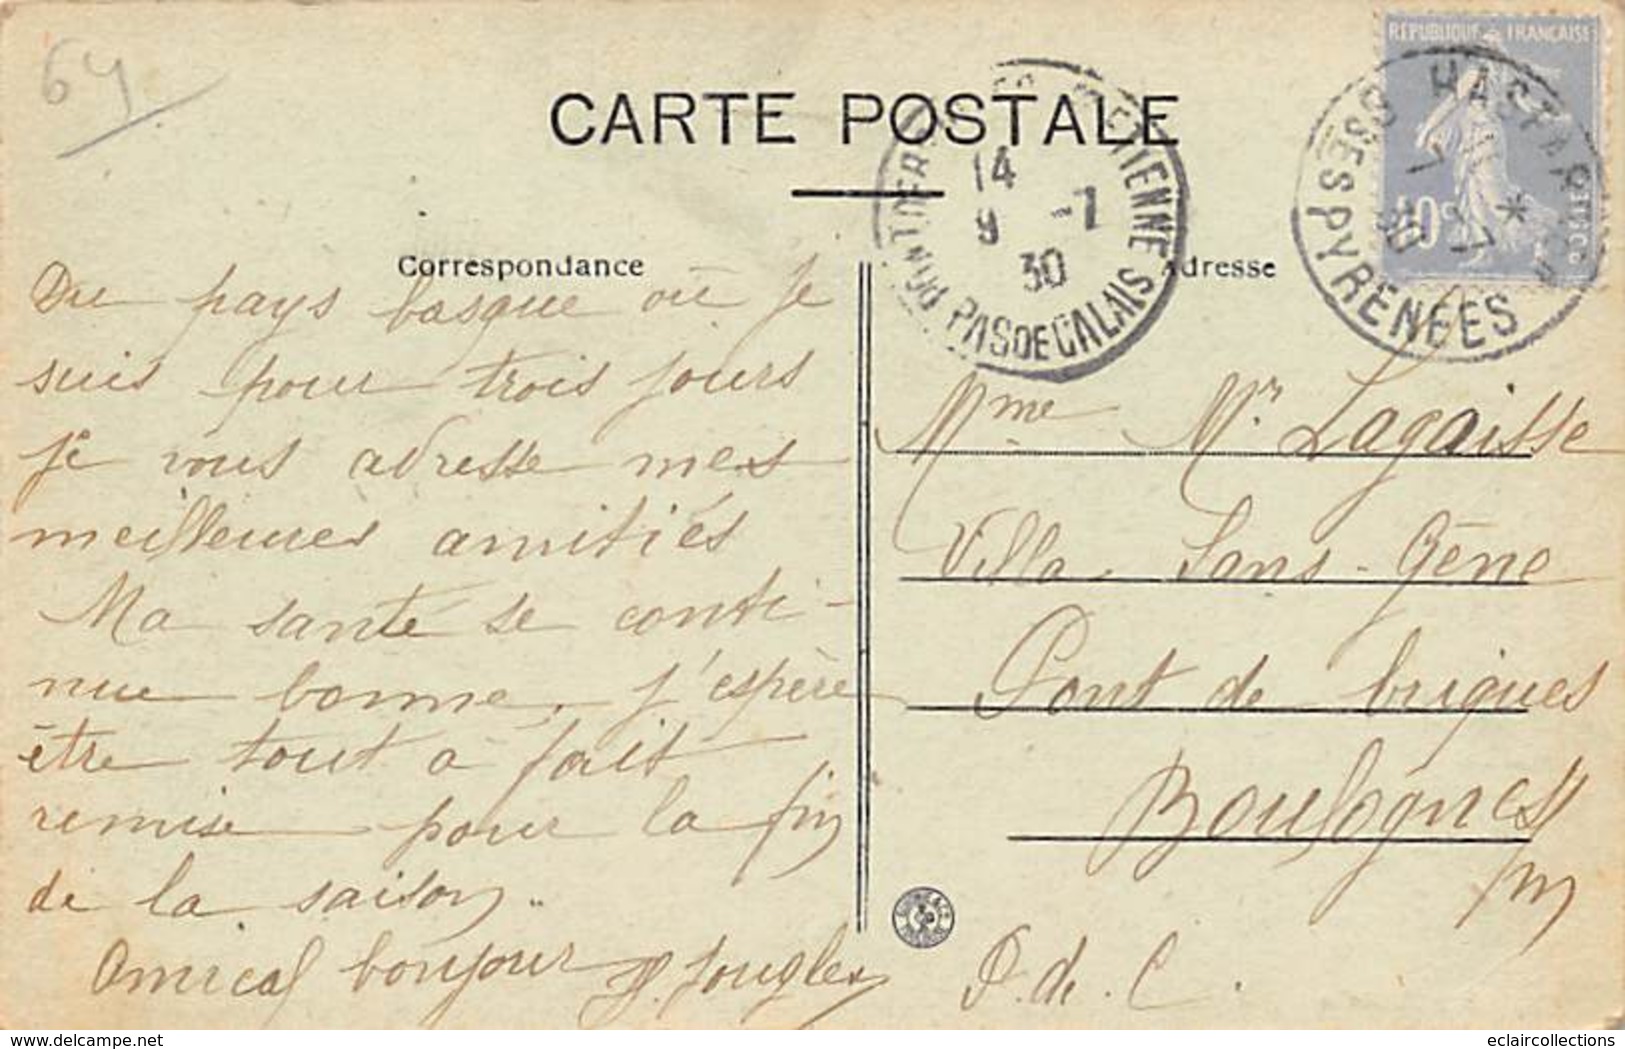 64
CARTE POSTALE
RÉPUBLIQUE FRANÇAISE
40c
HASTAR
BSES PYRENEES
ETIENNE
14
9 -7
30
PAS DE CALAIS
Correspondance
Adresse
Du pays basque où je
suis pour trois jours
je vous adresse mes
meilleures amitiés
Ma santé se conti-
nue bonne, j'espère
être tout à fait
remise pour la fin
de la saison..
Amical bonjour
Mme Mr Lagaisse
Villa Sans-Gêne
Pont de briques
Boulogne s/
m
P. de. C.
www.delcampe.net
eclaircollections